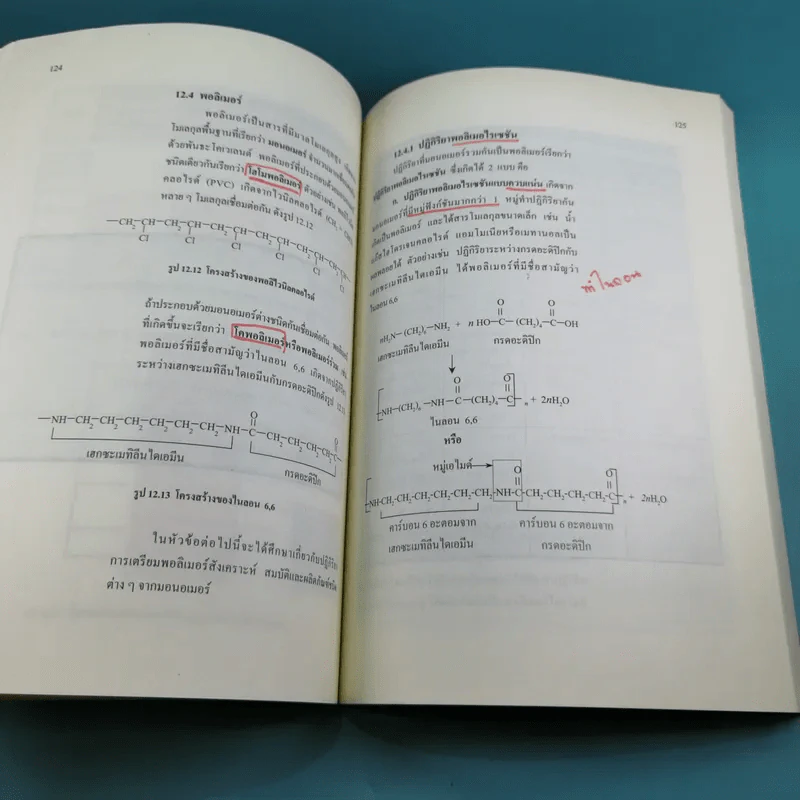 124
12.4 พอลิเมอร์
พอลิเมอร์เป็นสารที่มีมวลโมเลกุลสูง
โมเลกุลพื้นฐานที่เรียกว่า มอนอเมอร์ จำนวนมาก
ด้วยพันธะโคเวเลนต์ พอลิเมอร์ที่ประกอบด้วย
ชนิดเดียวกันเรียกว่า โฮโมพอลิเมอร์ ตัวอย่างเช่น
คลอไรด์ (PVC) เกิดจากไวนิลคลอไรด์
หลาย ๆ โมเลกุลเชื่อมต่อกัน ดังรูป 12.12
—CH2—CH—CH2—CH—CH2—CH—CH2—CH—CH2—CH—
Cl Cl Cl Cl Cl
รูป 12.12 โครงสร้างของพอลิไวนิลคลอไรด์
ถ้าประกอบด้วยมอนอเมอร์ต่างชนิดกันเชื่อมต่อกัน
ที่เกิดขึ้นจะเรียกว่า โคพอลิเมอร์หรือพอลิเมอร์ร่วม เช่น
พอลิเมอร์ที่มีชื่อสามัญว่าไนลอน 6,6 เกิดจากปฏิกิริยา
ระหว่างเฮกซะเมทิลีนไดเอมีนกับกรดอะดิปิกดังรูป 12.13
—NH—CH2—CH2—CH2—CH2—CH2—CH2—NH—C—CH2—CH2—CH2—CH2—C—
O O
เฮกซะเมทิลีนไดเอมีน กรดอะดิปิก
รูป 12.13 โครงสร้างของไนลอน 6,6
ในหัวข้อต่อไปนี้จะได้ศึกษาเกี่ยวกับปฏิกิริยา
การเตรียมพอลิเมอร์สังเคราะห์ สมบัติและผลิตภัณฑ์ชนิด
ต่าง ๆ จากมอนอเมอร์
125
12.4.1 ปฏิกิริยาพอลิเมอไรเซชัน
ปฏิกิริยาที่มอนอเมอร์รวมกันเป็นพอลิเมอร์เรียกว่า
ปฏิกิริยาพอลิเมอไรเซชัน ซึ่งเกิดได้ 2 แบบ คือ
ก. ปฏิกิริยาพอลิเมอไรเซชันแบบควบแน่น เกิดจาก
มอนอเมอร์ที่มีหมู่ฟังก์ชันมากกว่า 1 หมู่ทำปฏิกิริยากัน
เกิดเป็นพอลิเมอร์ และได้สารโมเลกุลขนาดเล็ก เช่น น้ำ
แก๊สไฮโดรเจนคลอไรด์ แอมโมเนียหรือเมทานอลเป็น
ผลพลอยได้ ตัวอย่างเช่น ปฏิกิริยาระหว่างกรดอะดิปิกกับ
เฮกซะเมทิลีนไดเอมีน ได้พอลิเมอร์ที่มีชื่อสามัญว่า
ไนลอน 6,6
ทำไนลอน
O O
nH2N—(CH2)6—NH2 + n HO—C—(CH2)4—C—OH
เฮกซะเมทิลีนไดเอมีน กรดอะดิปิก
O O
[NH—(CH2)6—NH—C—(CH2)4—C]n + 2nH2O
ไนลอน 6,6
หรือ
หมู่เอไมด์
O O
[NH-CH2-CH2-CH2-CH2-CH2-CH2-NH-C-CH2-CH2-CH2-CH2-C]n + 2nH2O
คาร์บอน 6 อะตอมจาก คาร์บอน 6 อะตอมจาก
เฮกซะเมทิลีนไดเอมีน กรดอะดิปิก